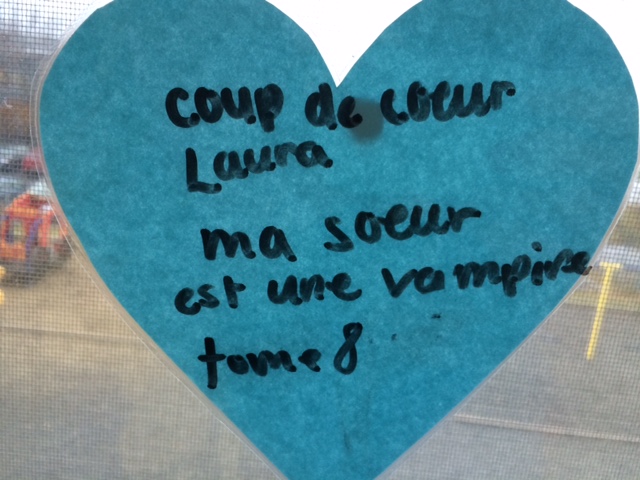 coup de coeur
Laura
ma soeur
est une vampire
tome 8